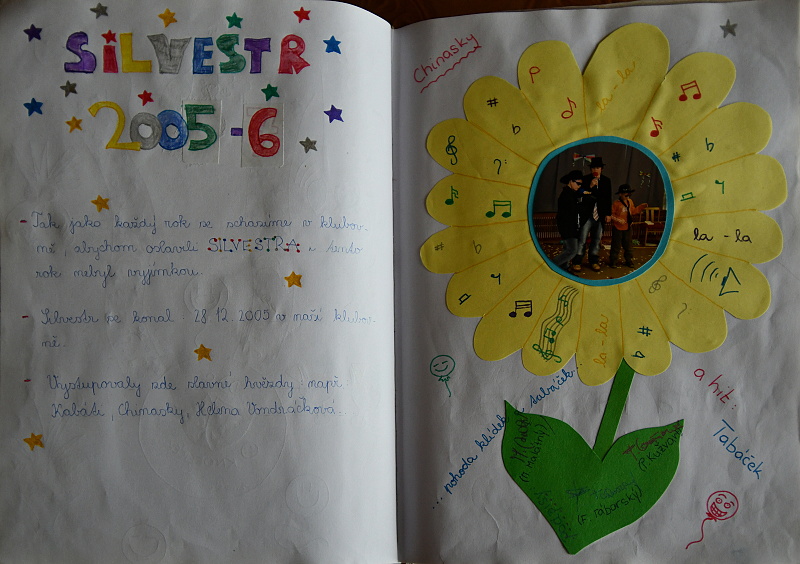 SILVESTR
2005-6
- Tak jako každý rok se scházíme v klubov-
ně, abychom oslavili SILVESTRA a tento
rok nebyl vyjímkou.
- Silvestr se konal 28.12.2005 v naší klubov-
ně.
- Vystupovaly zde slavné hvězdy: např.
Kabáti, Chinasky, Helena Vondráčková.
Chinasky
la-la
la-la
la-la
...pohoda klídek a tabáček...
a hit:
Tabáček
(P. Kužvart)
(F. Táborský)